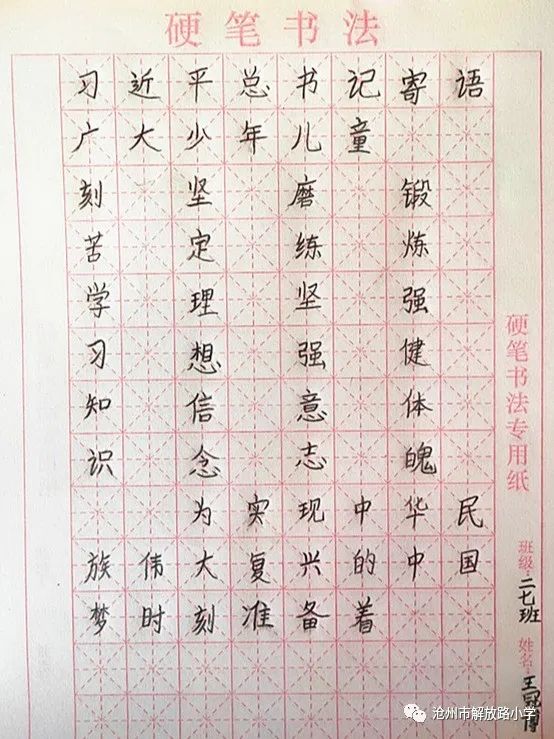 硬笔书法
习近平总书记寄语
广大少年儿童
刻苦学习知识
坚定理想信念
磨练坚强意志
锻炼强健体魄
为实现中华民
族伟大复兴的中国
梦时刻准备着
硬笔书法专用纸
班级:二七班
姓名:
沧州市解放路小学